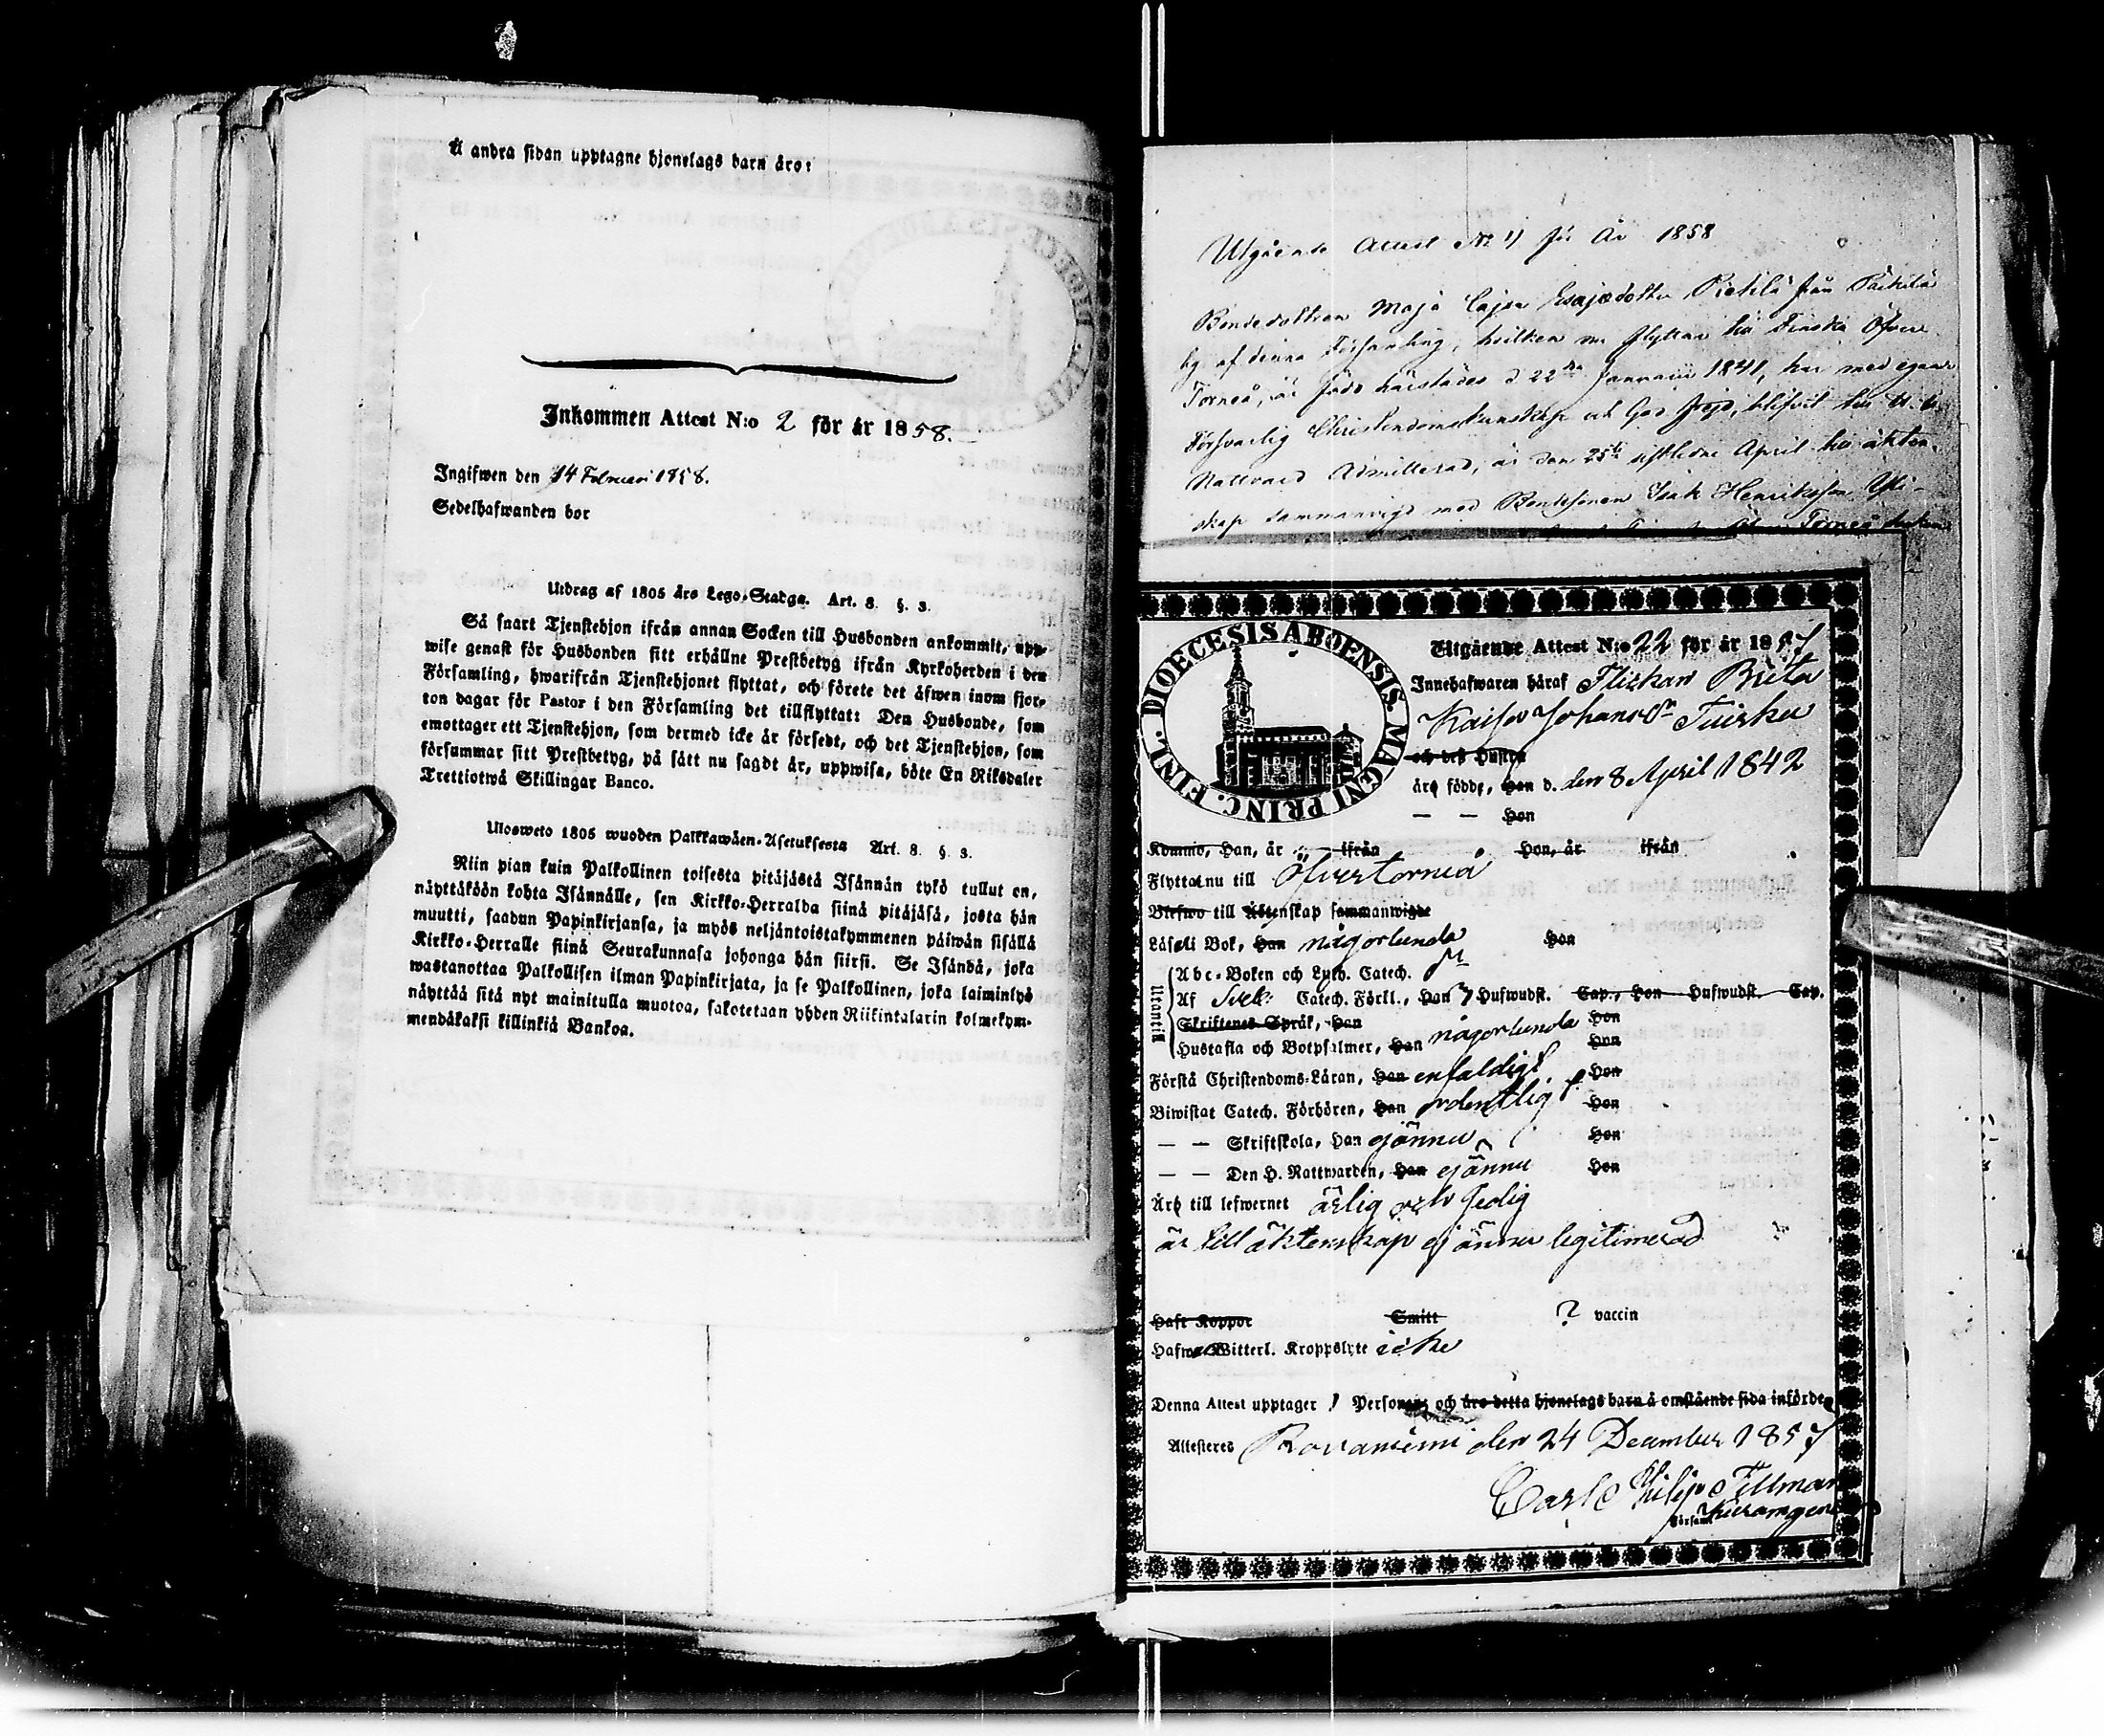 å andra sidan upptagne hjonelags barn äro:
Inkommen Attest N:o 2 för år 1858.
Ingifwen den 14 Februari 1858.
Sedelhafwanden bor
Utdrag af 1805 års Lego-Stadga. Art. 8. §. 3.
Så snart Tjenstehjon ifrån annan Socken till Husbonden ankommit, upp-
wise genast för Husbonden sitt erhållne Prestbetyg ifrån Kyrkoherden i den
Församling, hwarifrån Tjenstehjonet flyttat, och förete det äfwen inom fjor-
ton dagar för Pastor i den Församling det tillflyttat: Den Husbonde, som
emottager ett Tjenstehjon, som dermed icke är försedt, och det Tjenstehjon, som
försummar sitt Prestbetyg, på sätt nu sagdt är, uppwisa, böte En Riksdaler
Trettiotwå Skillingar Banco.
Ulosweto 1805 wuoden Palkkawäen-Asetuksesta Art. 8. §. 3.
Niin pian kuin Palkollinen toisesta pitäjästä Isännän tykö tullut on,
näyttäköön kohta Isännälle, sen Kirkko-Herralda siinä pitäjäsä, josta hän
muutti, saadun Papinkirjansa, ja myös neljäntoistakymmenen päiwän sisällä
Kirkko-Herralle siinä Seurakunnasa johonga hän siirsi. Se Isändä, joka
wastanottaa Palkollisen ilman Papinkirjata, ja se Palkollinen, joka laiminlyö
näyttää sitä nyt mainitulla muotoa, sakotetaan yhden Riikintalarin kolmekym-
mendäkaksi killinkiä Bankoa.
Utgående Attest No 11 för År 1858
Bondedottren Maja Cajsa Esajædotter från
by af denna Församling, hvilken nu flyttar till Finska Öfver
Torneå, är född härstädes d 22dra Januarii 1841, har med egen
Försvarlig Christendomskunskap och God frejd, blifvit till H. H.
Nattvard Admitterad, är den 25te sistledne April till äkten-
skap sammanvigd med Bondesonen Isak Henriksson
Torneå
DIOECESIS ABOENSIS. MAGNI PRINC. FINL.
Utgående Attest N:o 22 för år 1857
Innehafwaren häraf Flickan Brita
Kaisa Johansdr Tuisku
och dess Hustru
äro födde, Han d. den 8 April 1842
— — Hon
Kommo, Han, år ifrån Hon, år ifrån
Flytta nu till Öfvertorneå
Blefwo till Äktenskap sammanwigde
Läsa i Bok, Han någorlunda Hon
Utantill
Abc-Boken och Luth. Catech.
Af Sveb: Catech. Förkl., Han 7 Hufwudst. Cap., Hon Hufwudst. Cap.
Skriftenes Språk, Han Hon
Hustafla och Botpsalmer, Han någorlunda Hon
Förstå Christendoms-Läran, Han enfaldigt Hon
Biwistat Catech. Förhören, Han ordentlig Hon
— — Skriftskola, Han ej ännu Hon
— — Den H. Nattwarden, Han ej ännu Hon
Äro till lefwernet ärlig och sedig
är till äktenskap ej ännu legitimerad
Haft Koppor Smitt ? vaccin
Hafwa Witterl. Kroppslyte icke
Denna Attest upptager 1 Personer och äro detta hjonelags barn å omstående sida införde
Attesteres Rovaniemi den 24 December 1857
Carl Philip Tillman
Församl.